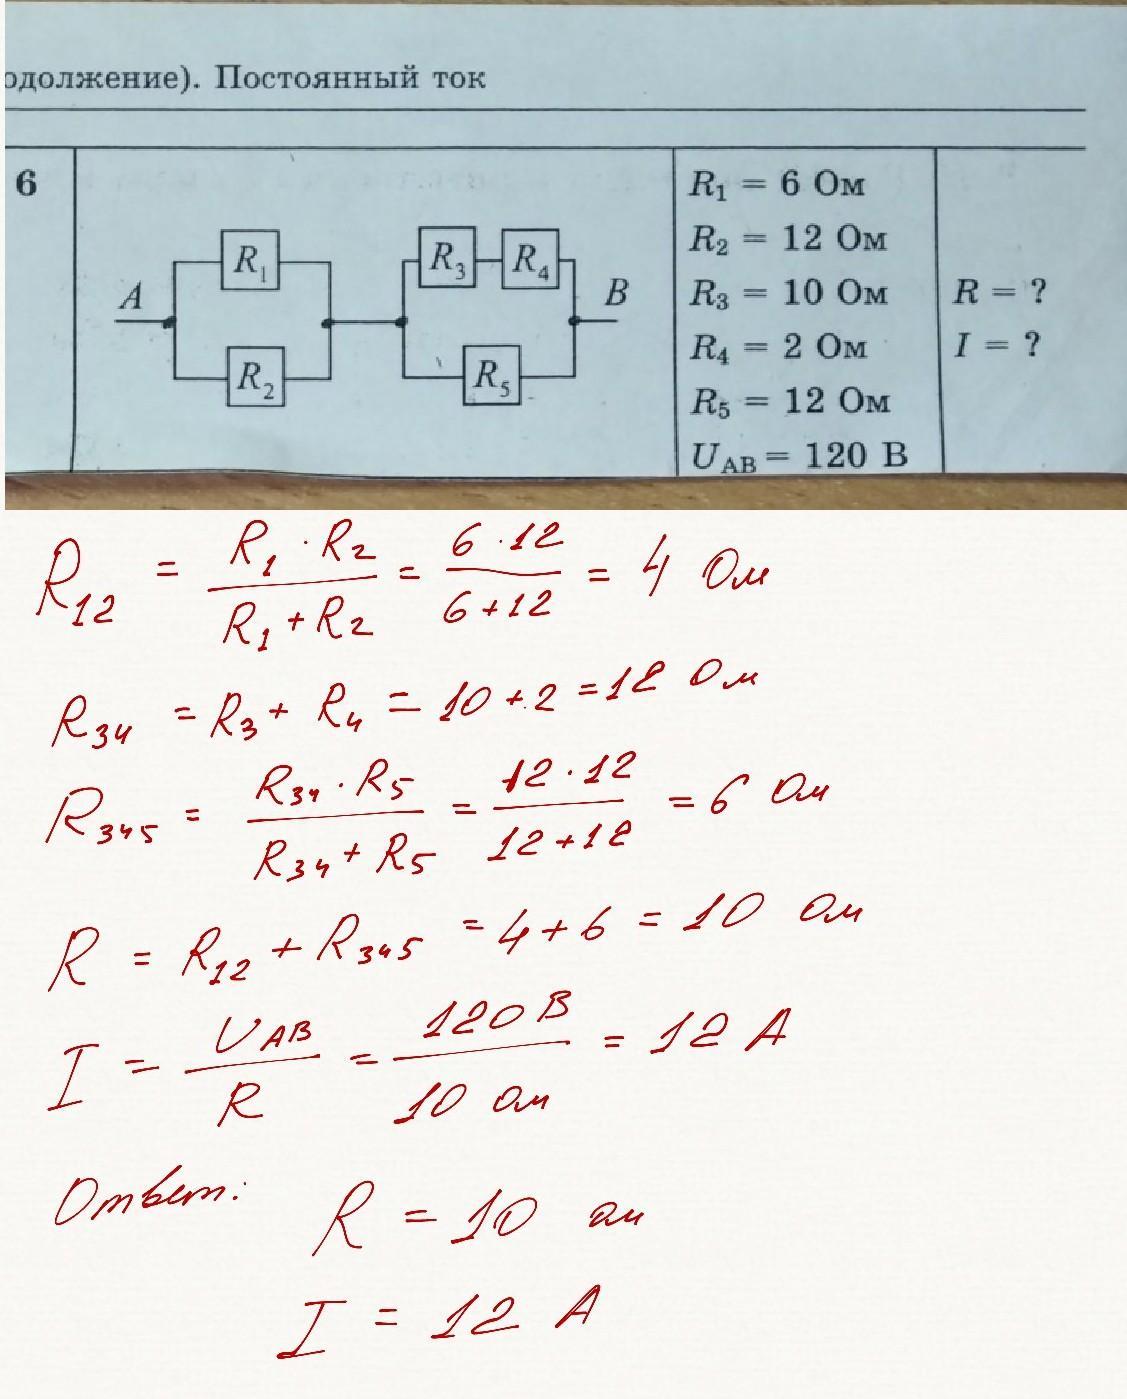 одолжение). Постоянный ток
6
A
R₁
R₂
R₃
R₄
R₅
B
R₁ = 6 Ом
R₂ = 12 Ом
R₃ = 10 Ом
R₄ = 2 Ом
R₅ = 12 Ом
U_AB = 120 В
R = ?
I = ?
R₁₂ = (R₁ · R₂)/(R₁ + R₂) = (6 · 12)/(6 + 12) = 4 Ом
R₃₄ = R₃ + R₄ = 10 + 2 = 12 Ом
R₃₄₅ = (R₃₄ · R₅)/(R₃₄ + R₅) = (12 · 12)/(12 + 12) = 6 Ом
R = R₁₂ + R₃₄₅ = 4 + 6 = 10 Ом
I = U_AB/R = 120 В/10 Ом = 12 А
Ответ:
R = 10 Ом
I = 12 А